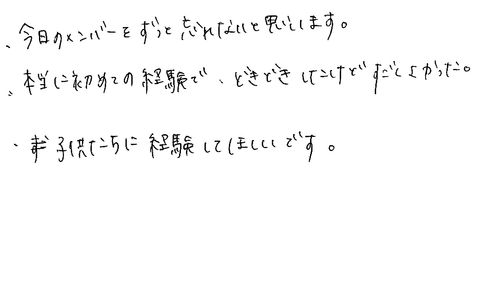 、今日のメンバーをずっと忘れないと思いします。
、本当に初めての経験で、どきどきしたけどすごくよかった。
、子供たちに経験してほしいです。